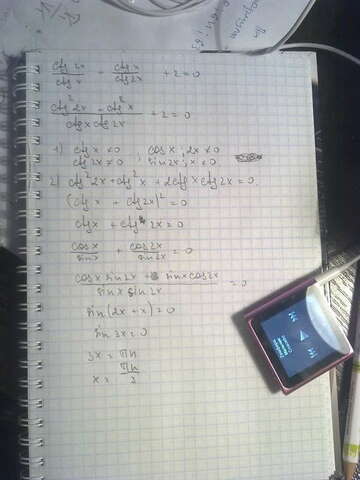 ctg 2x / ctg x + ctg x / ctg 2x + 2 = 0
ctg² 2x + ctg² x / ctg x ctg 2x + 2 = 0
1) ctg x ≠ 0 cos x, 2x ≠ 0
ctg 2x ≠ 0 ; sin 2x, x ≠ 0
2) ctg² 2x + ctg² x + 2ctg x ctg 2x = 0
(ctg x + ctg 2x)² = 0
ctg x + ctg 2x = 0
cos x / sin x + cos 2x / sin 2x = 0
cos x sin 2x + sin x cos 2x / sin x sin 2x = 0
sin (2x + x) = 0
sin 3x = 0
3x = πn
x = πn / 3